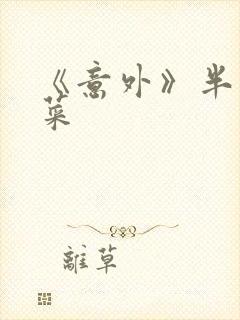 《意外》半
菜
離草